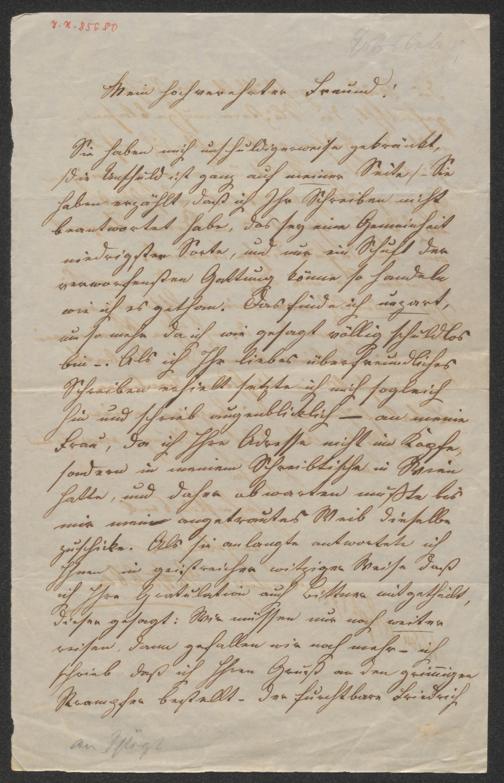 Mein hochverehrter Freund!
Sie haben mich unschuldigerweise gekränkt,
/: die Unschuld ist ganz auf meiner Seite, :/ Sie
haben erzählt, daß ich Ihr Schreiben nicht
beantwortet habe, das sey eine Gemeinheit
niedrigster Sorte, und nur ein Schuft der
verworfensten Gattung könne so handeln
wie ich es gethan. Das finde ich unzart,
um so mehr da ich wie gesagt völlig schuldlos
bin –. Als ich Ihr liebes überfreundliches
Schreiben erhielt setzte ich mich sogleich
hin und schrieb augenblicklich – an meine
Frau, da ich Ihre Adresse nicht im Kopfe,
sondern in meinem Schreibtische in Wien
hatte, und daher abwarten mußte bis
mir mein angetrautes Weib dieselbe
zuschicke. Als sie anlangte antwortete ich
Ihnen in geistreicher witziger Weise daß
ich Ihre Gratulation auch mitgetheilt,
dieser gesagt: Wir müssen nur noch weiter
reisen, dann gefallen wir noch mehr – ich
schrieb daß ich Ihren Gruß an den grimmigen
Strampfer bestellt – der furchtbare Friedrich